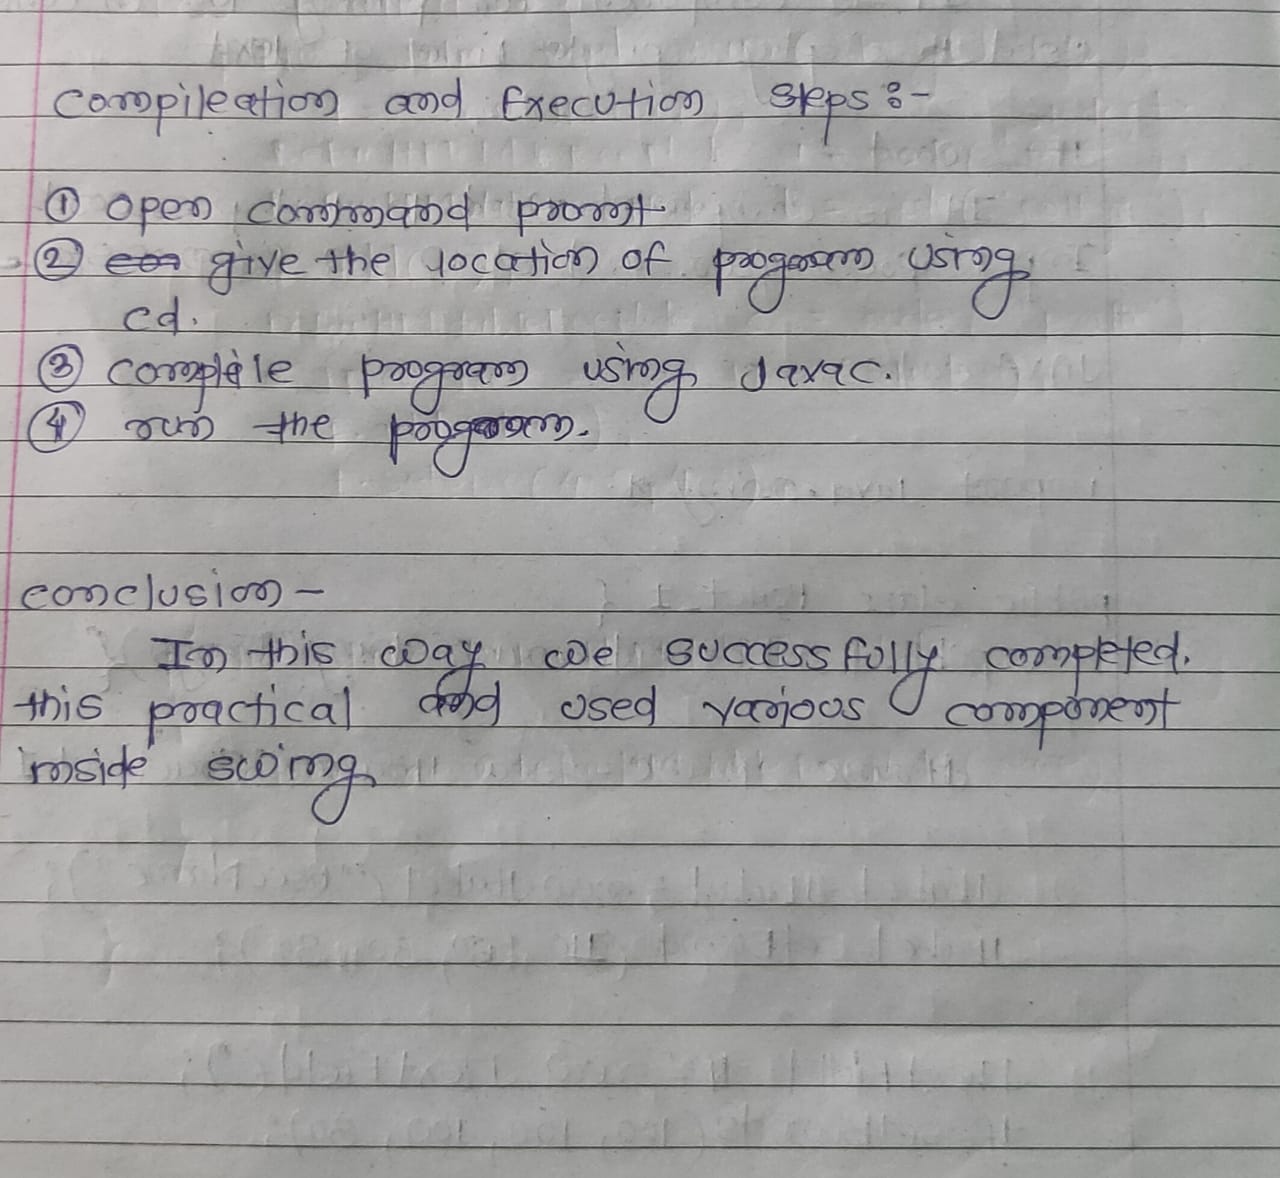 Compileation and Execution Steps :-
① Open command promt
② give the location of program using
cd.
③ compile program using Javac.
④ run the program.
Conclusion -
In this way we successfully completed.
this practical and used various component
inside swing